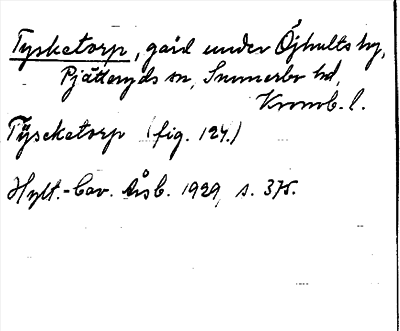 Tysketorp, gård under Öjhults by,
Pjätteryds sn, Sunnerbo hd,
Kronob. l.
Tÿsketorp (fig. 124.)
Hylt.-Cav. Årsb. 1929, s. 375.